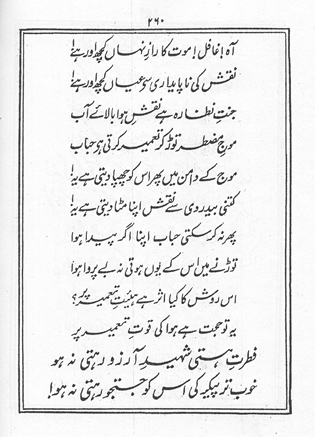 ۲۶۰
آہ! غافل! موت کا رازِ نہاں کچھ اور ہے!
نقش کی ناپایداری سے عیاں کچھ اور ہے!
جنتِ نظّارہ ہے نقشِ ہوا بالائے آب
موجِ مضطر توڑ کر تعمیر کرتی ہے حباب
موج کے دامن میں پھر اس کو چھپا دیتی ہے یہ!
کتنی بیدردی سے نقش اپنا مٹا دیتی ہے یہ!
پھر نہ کر سکتی حباب اپنا اگر پیدا ہوا
توڑنے میں اس کے یوں ہوتی نہ بے پروا ہوا
اس روش کا کیا اثر ہے ہیئتِ تعمیر پر؟
یہ تو حجت ہے ہوا کی قوتِ تعمیر پر
فطرتِ ہستی شہیدِ آرزو رہتی نہ ہو
خوب تر پیکر کی اس کو جستجو رہتی نہ ہو!